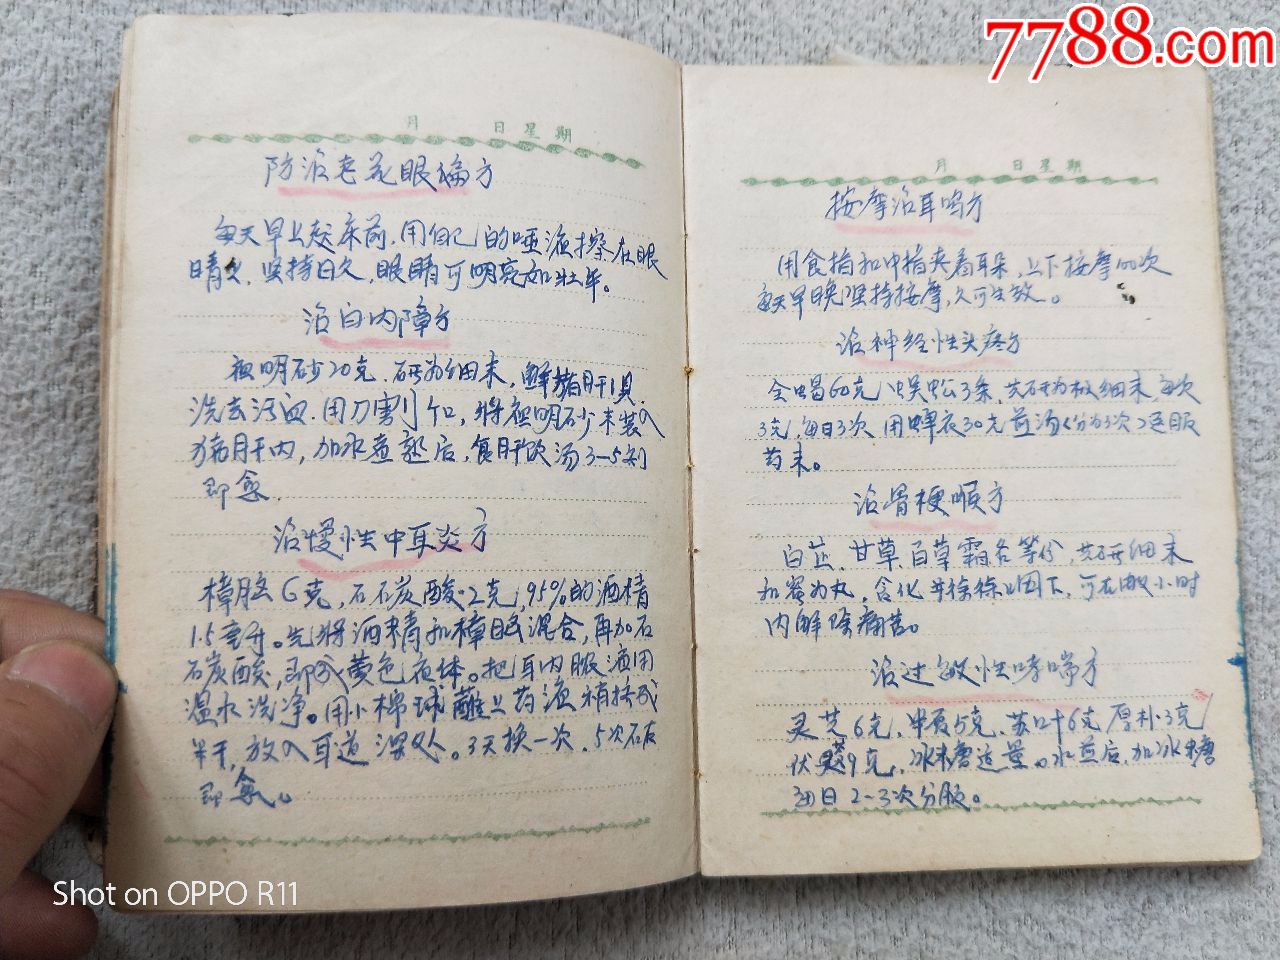 7788.com
月 日 星 期
防治老花眼偏方
每天早上起床前,用自己的唾液擦在眼
睛上,坚持日久,眼睛可明亮如壮年。
治白内障方
夜明砂20克,研为细末,鲜猪肝1具,
洗去污血,用刀割个口,将夜明砂末装入
猪肝内,加水煮熟后,食肝饮汤3-5剂
即愈
治慢性中耳炎方
樟脑6克,石石炭酸·2克,95%的酒精
1.5毫升。先将酒精和樟脑混合,再加石
石炭酸,即成黄色液体。把耳内脓液用
温水洗净。用小棉球蘸上药液稍括成
半干,放入耳道深处。3天换一次,5次
即愈。
月 日 星 期
按摩治耳鸣方
用食指和中指夹着耳朵,上下按摩100次
每天早晚坚持按摩,久可生效。
治神经性头疼方
全蝎60克 蜈蚣3条,共研为极细末,每次
3克,每日3次 用蝉衣30克煎汤(分为3次)送服
药末。
治骨梗喉方
白芷、甘草、百草霜各等份,共研细末
和蜜为丸,含化并徐徐咽下,可在数小时
内解除痛苦。
治过敏性哮喘方
灵芝6克,半夏5克,苏叶6克 厚朴3克
茯苓9克,冰糖适量。水煎后,加冰糖
每日2-3次分服。
Shot on OPPO R11